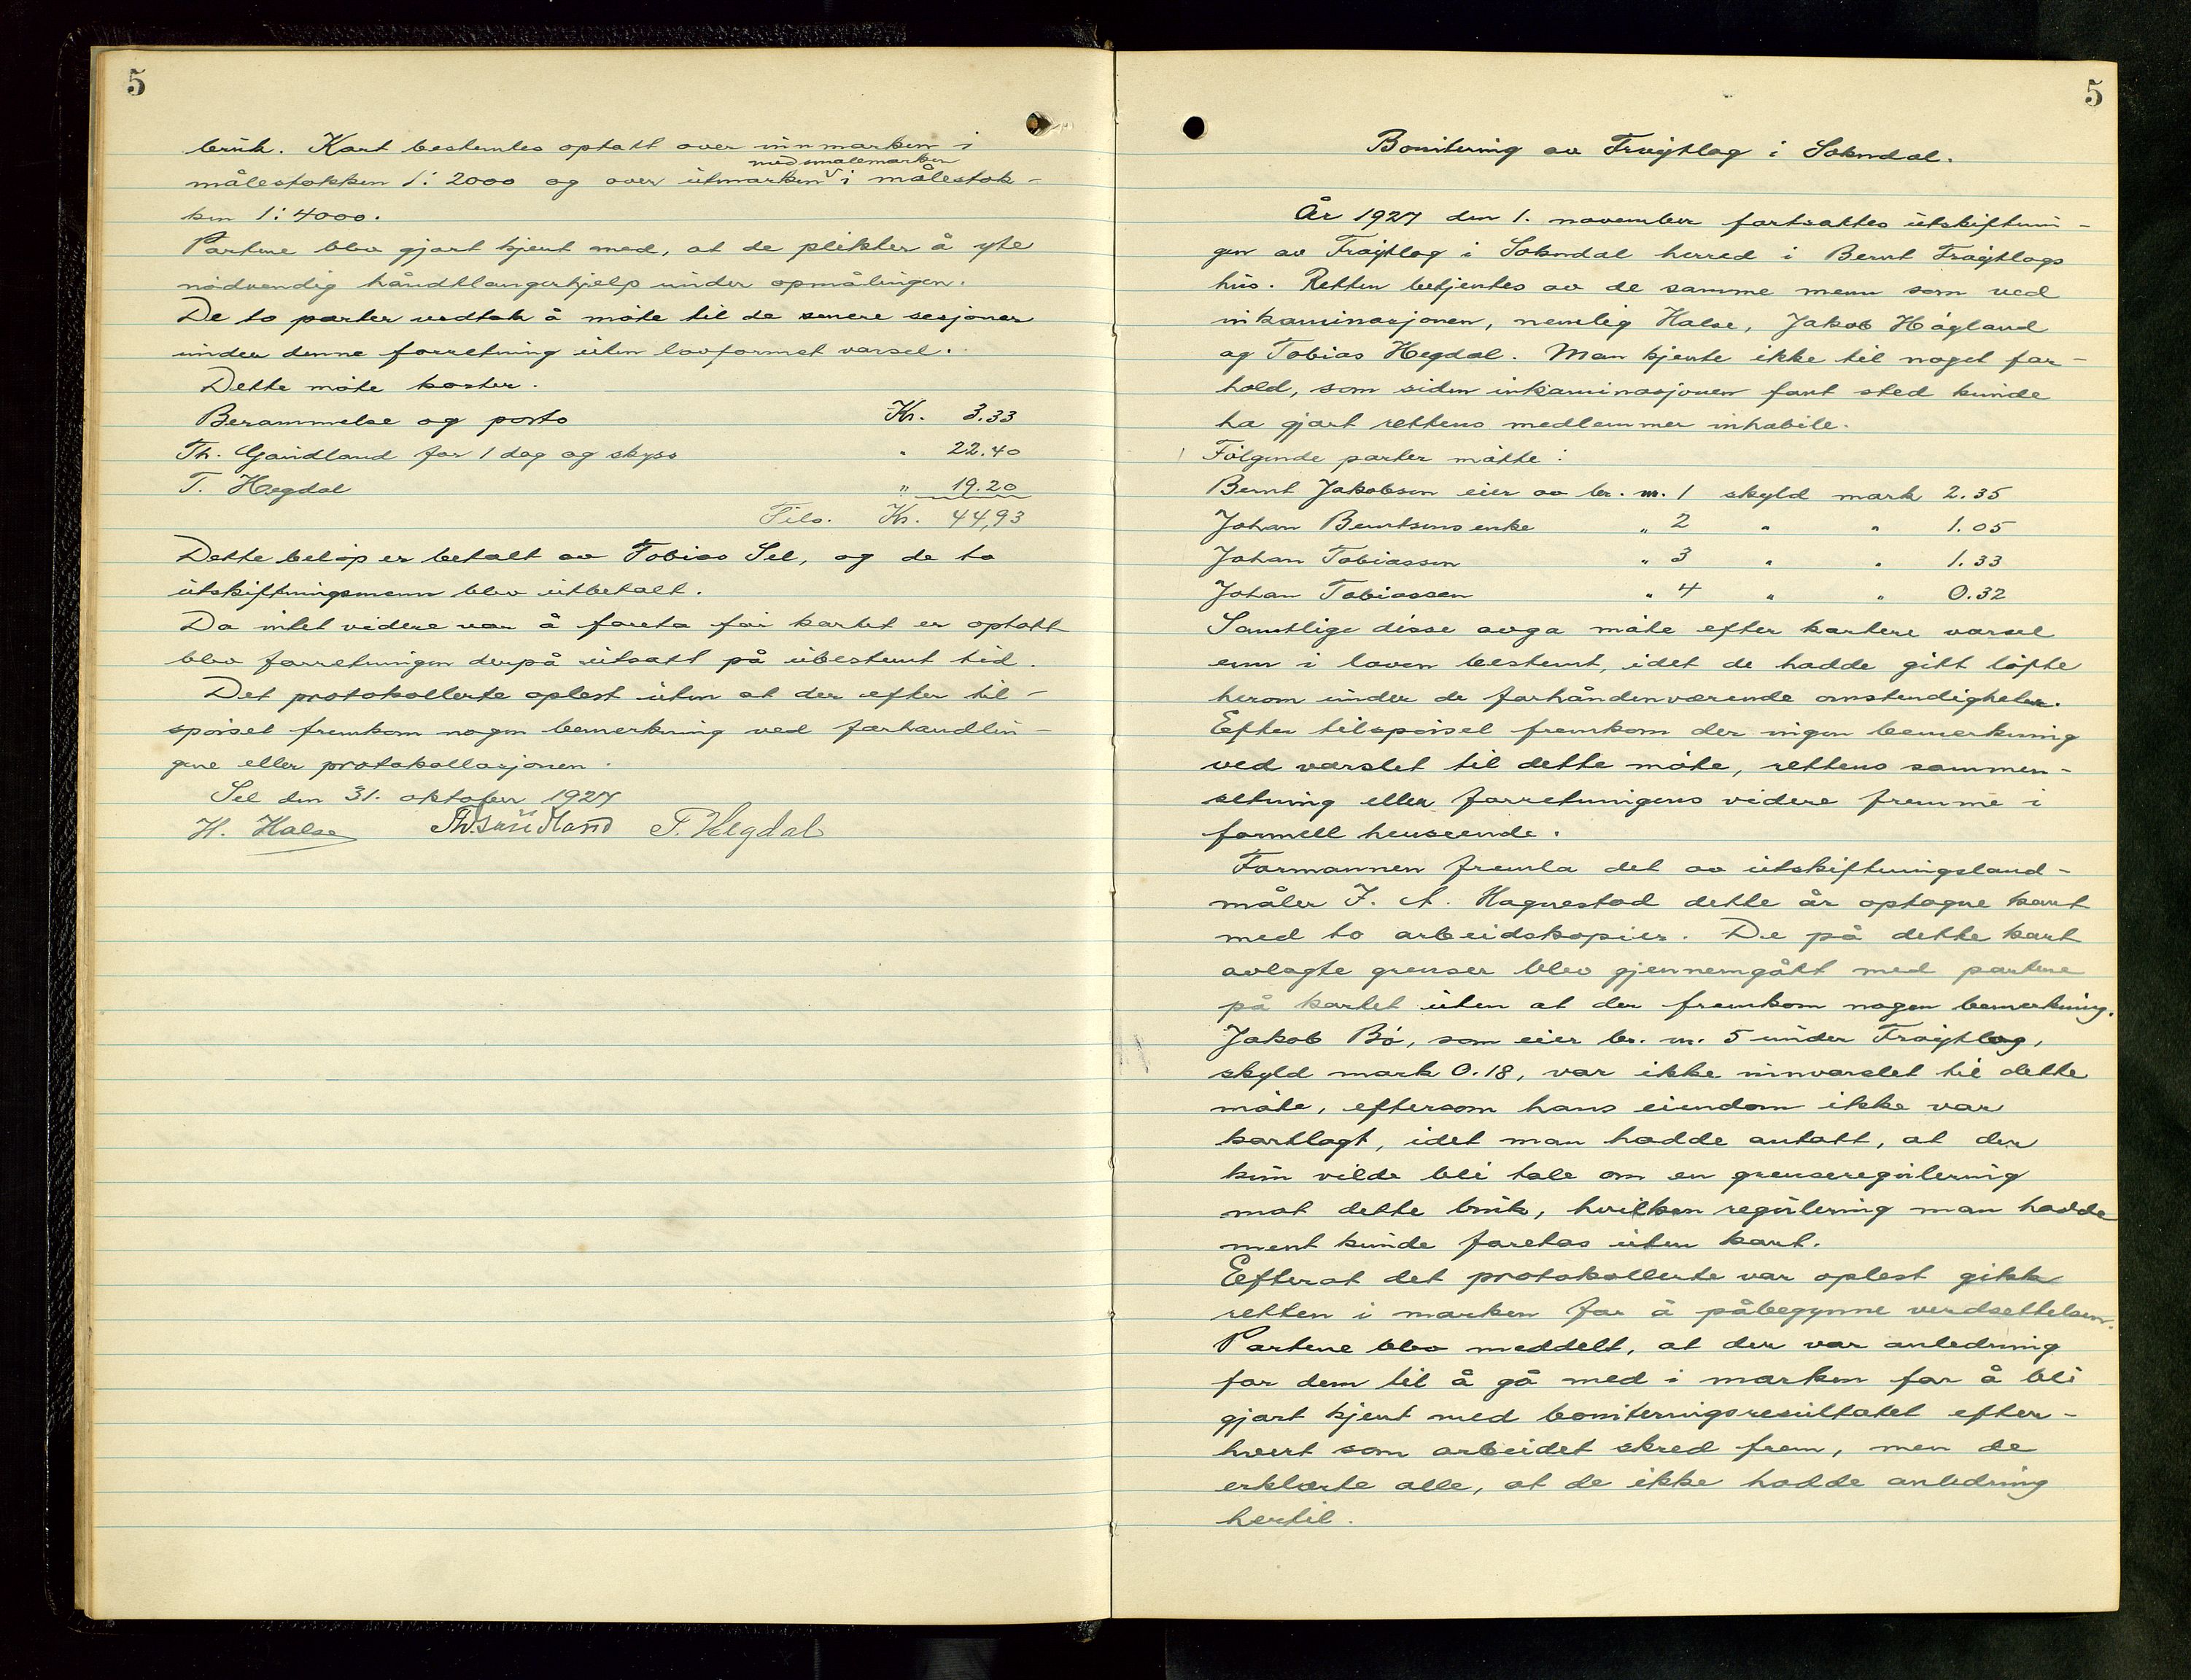 5
bruk. Kart bestemtes optatt over innmarken i
med smalemarken
målestokken 1:2000 og over utmarken i målestok-
ken 1:4000.
Partene blev gjort kjent med, at de plikter å yte
nødvendig håndtlangerhjelp under opmålingen.
De to parter vedtok å møte til de senere sesjoner
under denne forretning uten lovformet varsel.
Dette møte koster.
Berammelse og porto Kr. 3.33
Th. Gaudland for 1 dag og skyss " 22.40
T. Hegdal " 19.20
Tils. Kr. 44,93
Dette beløp er betalt av Tobias Sel, og de to
utskiftningsmenn blev utbetalt.
Da intet videre var å foreta før kartet er optatt
blev forretningen derpå utsatt på ubestemt tid.
Det protokollerte oplest uten at der efter til-
spørsel fremkom nogen bemerkning ved forhandlin-
gene eller protokollasjonen.
Sel den 31. oktober 1927
H. Halse Th. Gaudland T. Hegdal
5
Bonitering av Frøytlog i Sokndal.
År 1927 den 1. november fortsattes utskiftnin-
gen av Frøytlog i Sokndal herred i Bernt Frøytlogs
hus. Retten betjentes av de samme menn som ved
inkaminasjonen, nemlig Halse, Jakob Høgland
og Tobias Hegdal. Man kjente ikke til noget for-
hold, som siden inkaminasjonen fant sted kunde
ha gjort rettens medlemmer inhabile.
Følgende parter møtte:
Bernt Jakobsen eier av br. nr. 1 skyld mark 2.35
Johan Berntsens enke " 2 " " 1.05
Johan Tobiassen " 3 " " 1.33
Johan Tobiassen " 4 " " 0.32
Samtlige disse avga møte efter kortere varsel
enn i loven bestemt, idet de hadde gitt løfte
herom under de forhåndenværende omstendigheter.
Efter tilspørsel fremkom der ingen bemerkning
ved varslet til dette møte, rettens sammen-
setning eller forretningens videre fremme i
formell henseende.
Formannen fremla det av utskiftningsland-
måler J. A. Hagnestad dette år optagne kart
med to arbeidskopier. De på dette kart
avlagte grenser blev gjennemgått med partene
på kartet uten at der fremkom nogen bemerkning.
Jakob Bø, som eier br. nr. 5 under Frøytlog,
skyld mark 0.18, var ikke innvarslet til dette
møte, eftersom hans eiendom ikke var
kartlagt, idet man hadde antatt, at der
kun vilde bli tale om en grenseregulering
mot dette bruk, hvilken regulering man hadde
ment kunde foretas uten kart.
Efterat det protokollerte var oplest gikk
retten i marken for å påbegynne verdsettelsen.
Partene blev meddelt, at der var anledning
for dem til å gå med i marken for å bli
gjort kjent med boniteringsresultatet efter-
hvert som arbeidet skred frem, men de
erklærte alle, at de ikke hadde anledning
hertil.